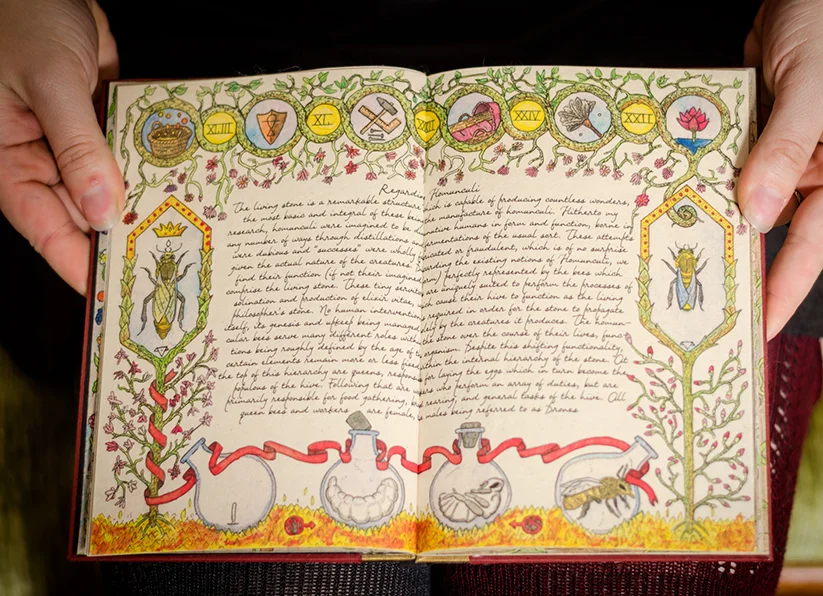 XLIII XL XXIV XXII
Regarding Homunculi
The living stone is a remarkable structure which is capable of producing countless wonders,
the most basic and integral of these being the manufacture of homunculi. Hitherto my
research, homunculi were imagined to be humans in form and function, borne in
any number of ways through distillations and fermentations of the usual sort. These attempts
were dubious and "successes" were wholly fabricated or fraudulent, which is of no surprise
given the actual nature of the creatures. Regarding the existing notions of Homunculi, we
find their function (if not their imagined form) perfectly represented by the bees which
comprise the living stone. These tiny are uniquely suited to perform the processes of
animation and production of elixir vitae, and cause their hive to function as the living
philosopher's stone. No human intervention required in order for the stone to propagate
itself, its genesis and upkeep being managed by the creatures it produces. The homun-
cular bees serve many different roles within the stone over the course of their lives, func-
tions being roughly defined by the age of the organism. Despite this shifting functionality,
certain elements remain more or less fixed within the internal hierarchy of the stone. At
the top of this hierarchy are queens, responsible for laying the eggs which in turn become the
populous of the hive. Following that are workers who perform an array of duties, but are
primarily responsible for food gathering, rearing, and general tasks of the hive. All
queen bees and workers are female, males being referred to as Drones